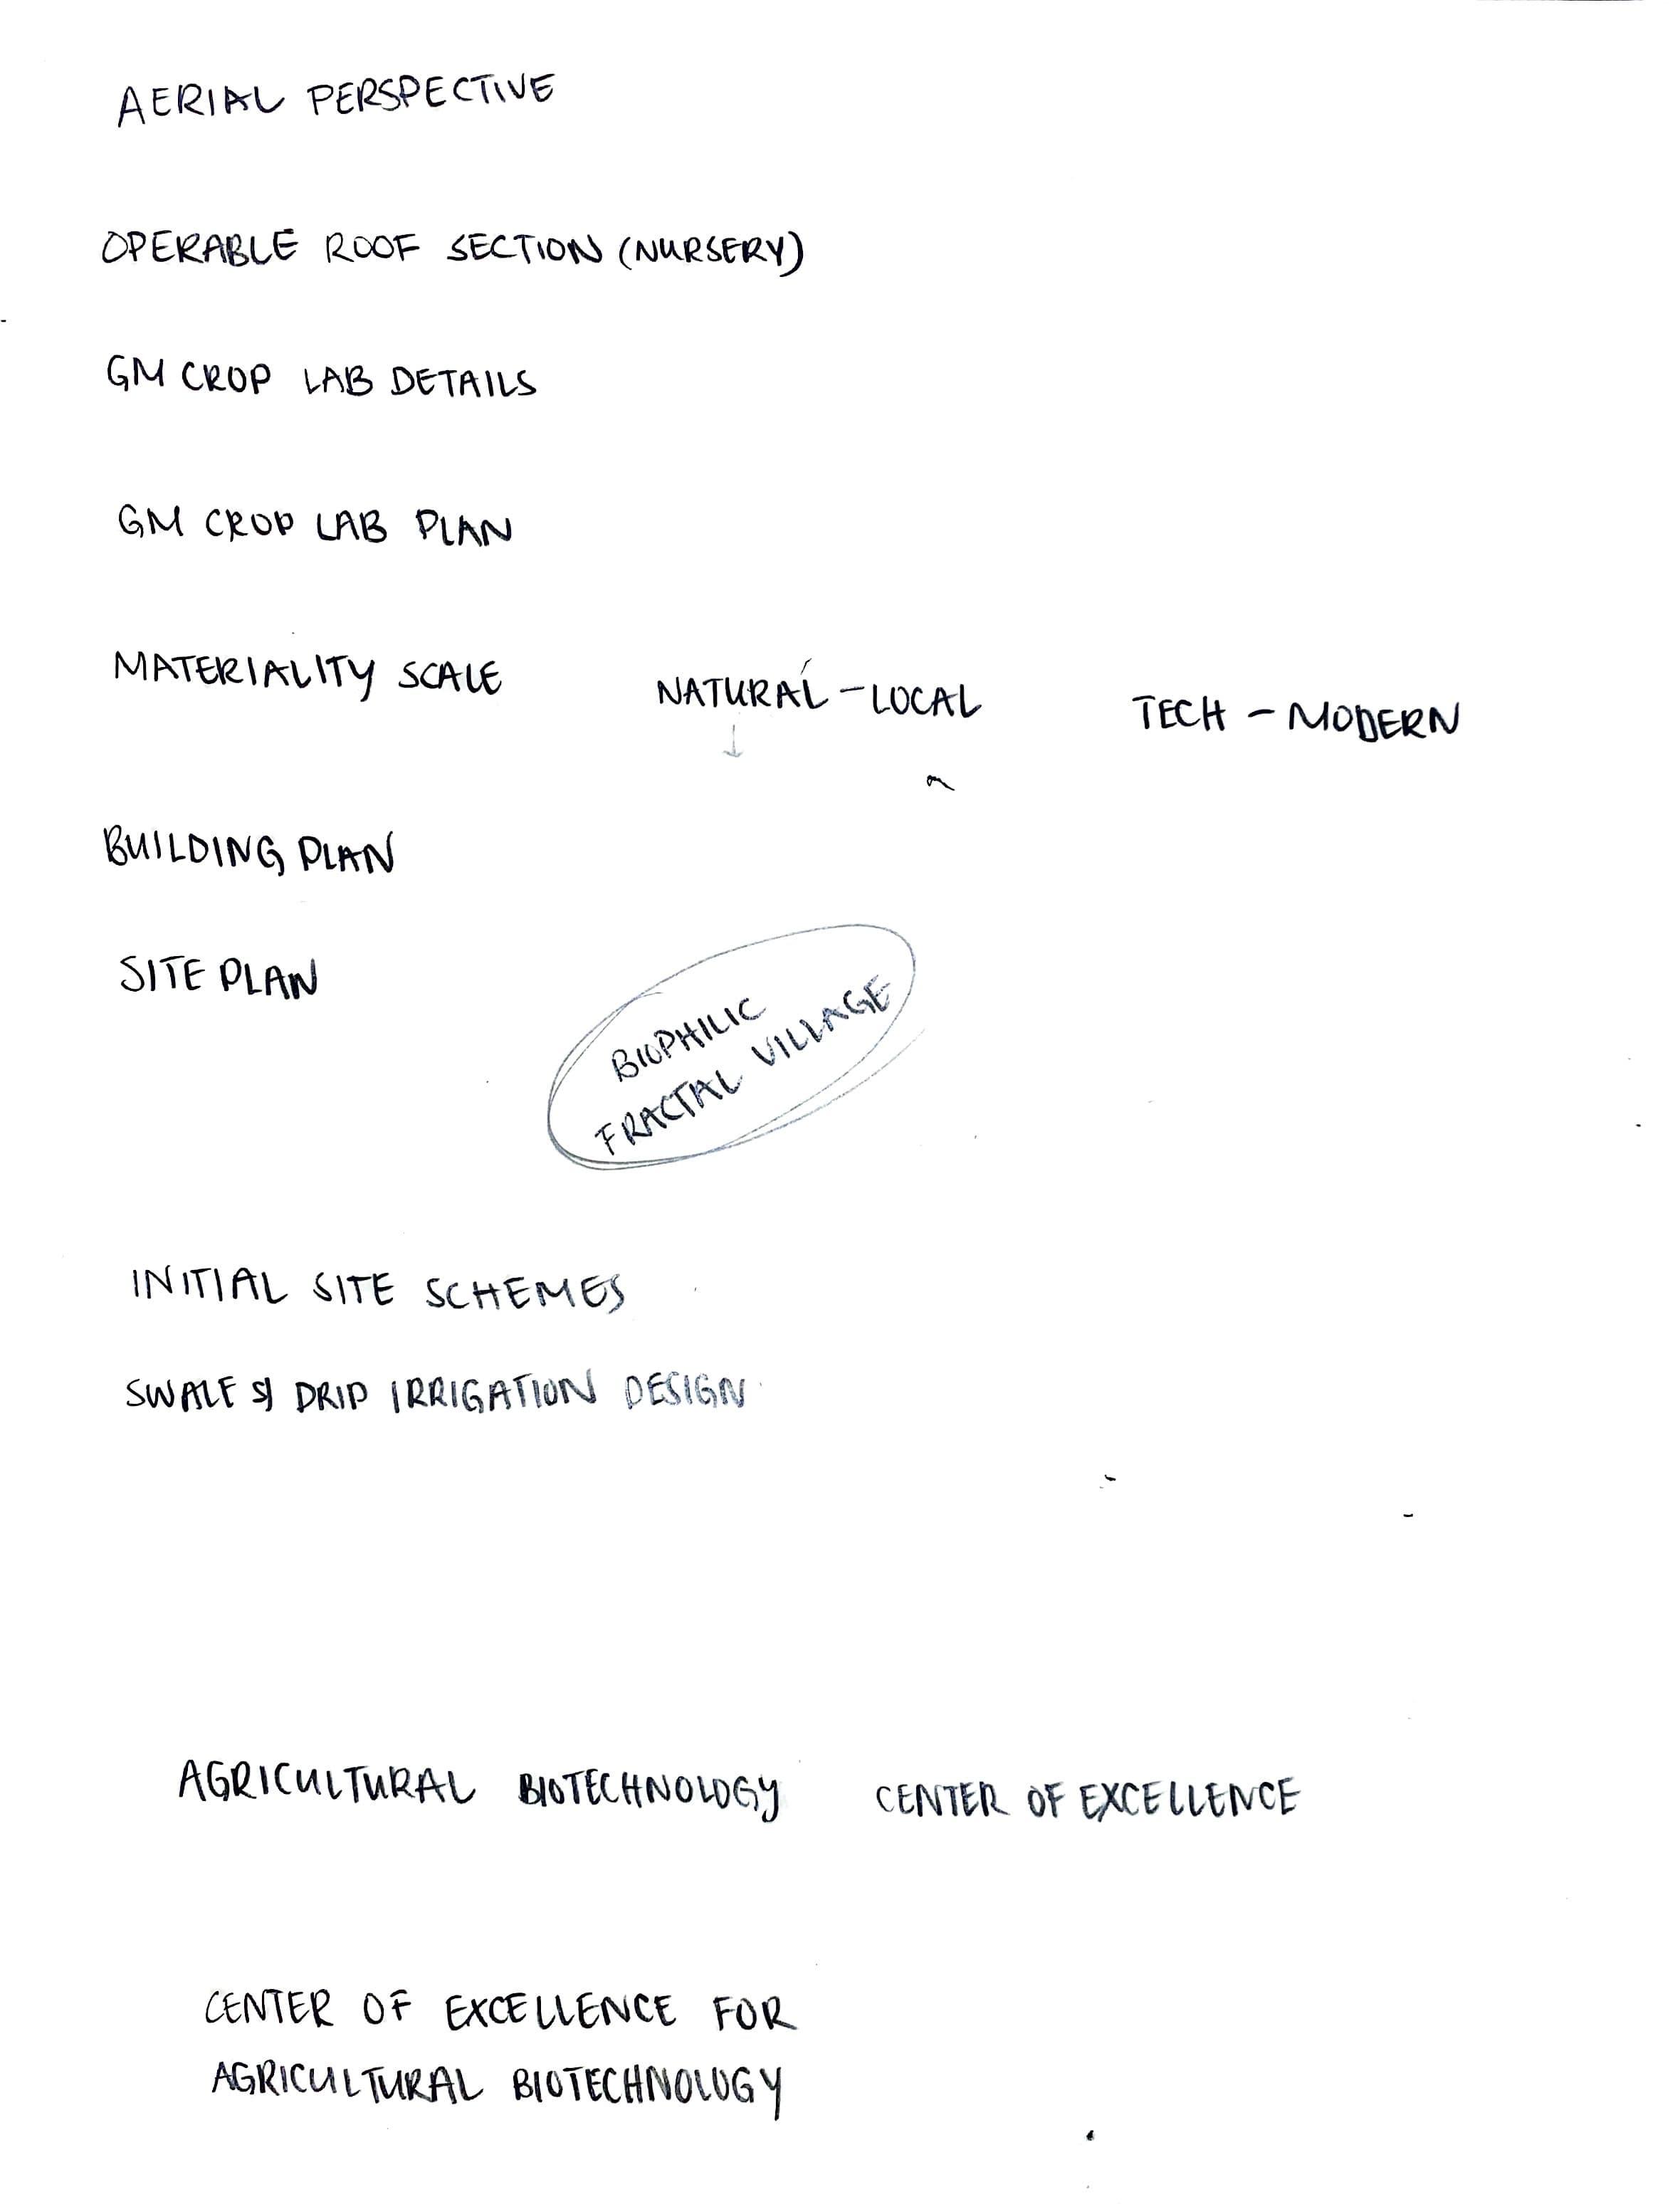 AERIAL PERSPECTIVE
OPERABLE ROOF SECTION (NURSERY)
GM CROP LAB DETAILS
GM CROP LAB PLAN
MATERIALITY SCALE NATURAL - LOCAL TECH - MODERN
BUILDING PLAN
SITE PLAN
BIOPHILIC
FRACTAL VILLAGE
INITIAL SITE SCHEMES
SWALE & DRIP IRRIGATION DESIGN
AGRICULTURAL BIOTECHNOLOGY CENTER OF EXCELLENCE
CENTER OF EXCELLENCE FOR
AGRICULTURAL BIOTECHNOLOGY